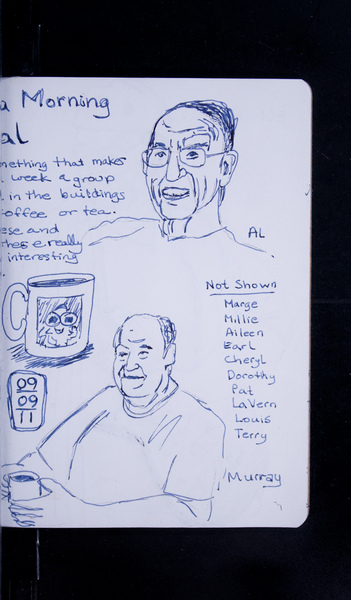 a Morning
al
mething that makes
week a group
in the buildings
coffee or tea.
ese and
these really
interesting
AL
Not Shown
Marge
Millie
Aileen
Earl
Cheryl
Dorothy
Pat
LaVern
Louis
Terry
09
09
11
Murray